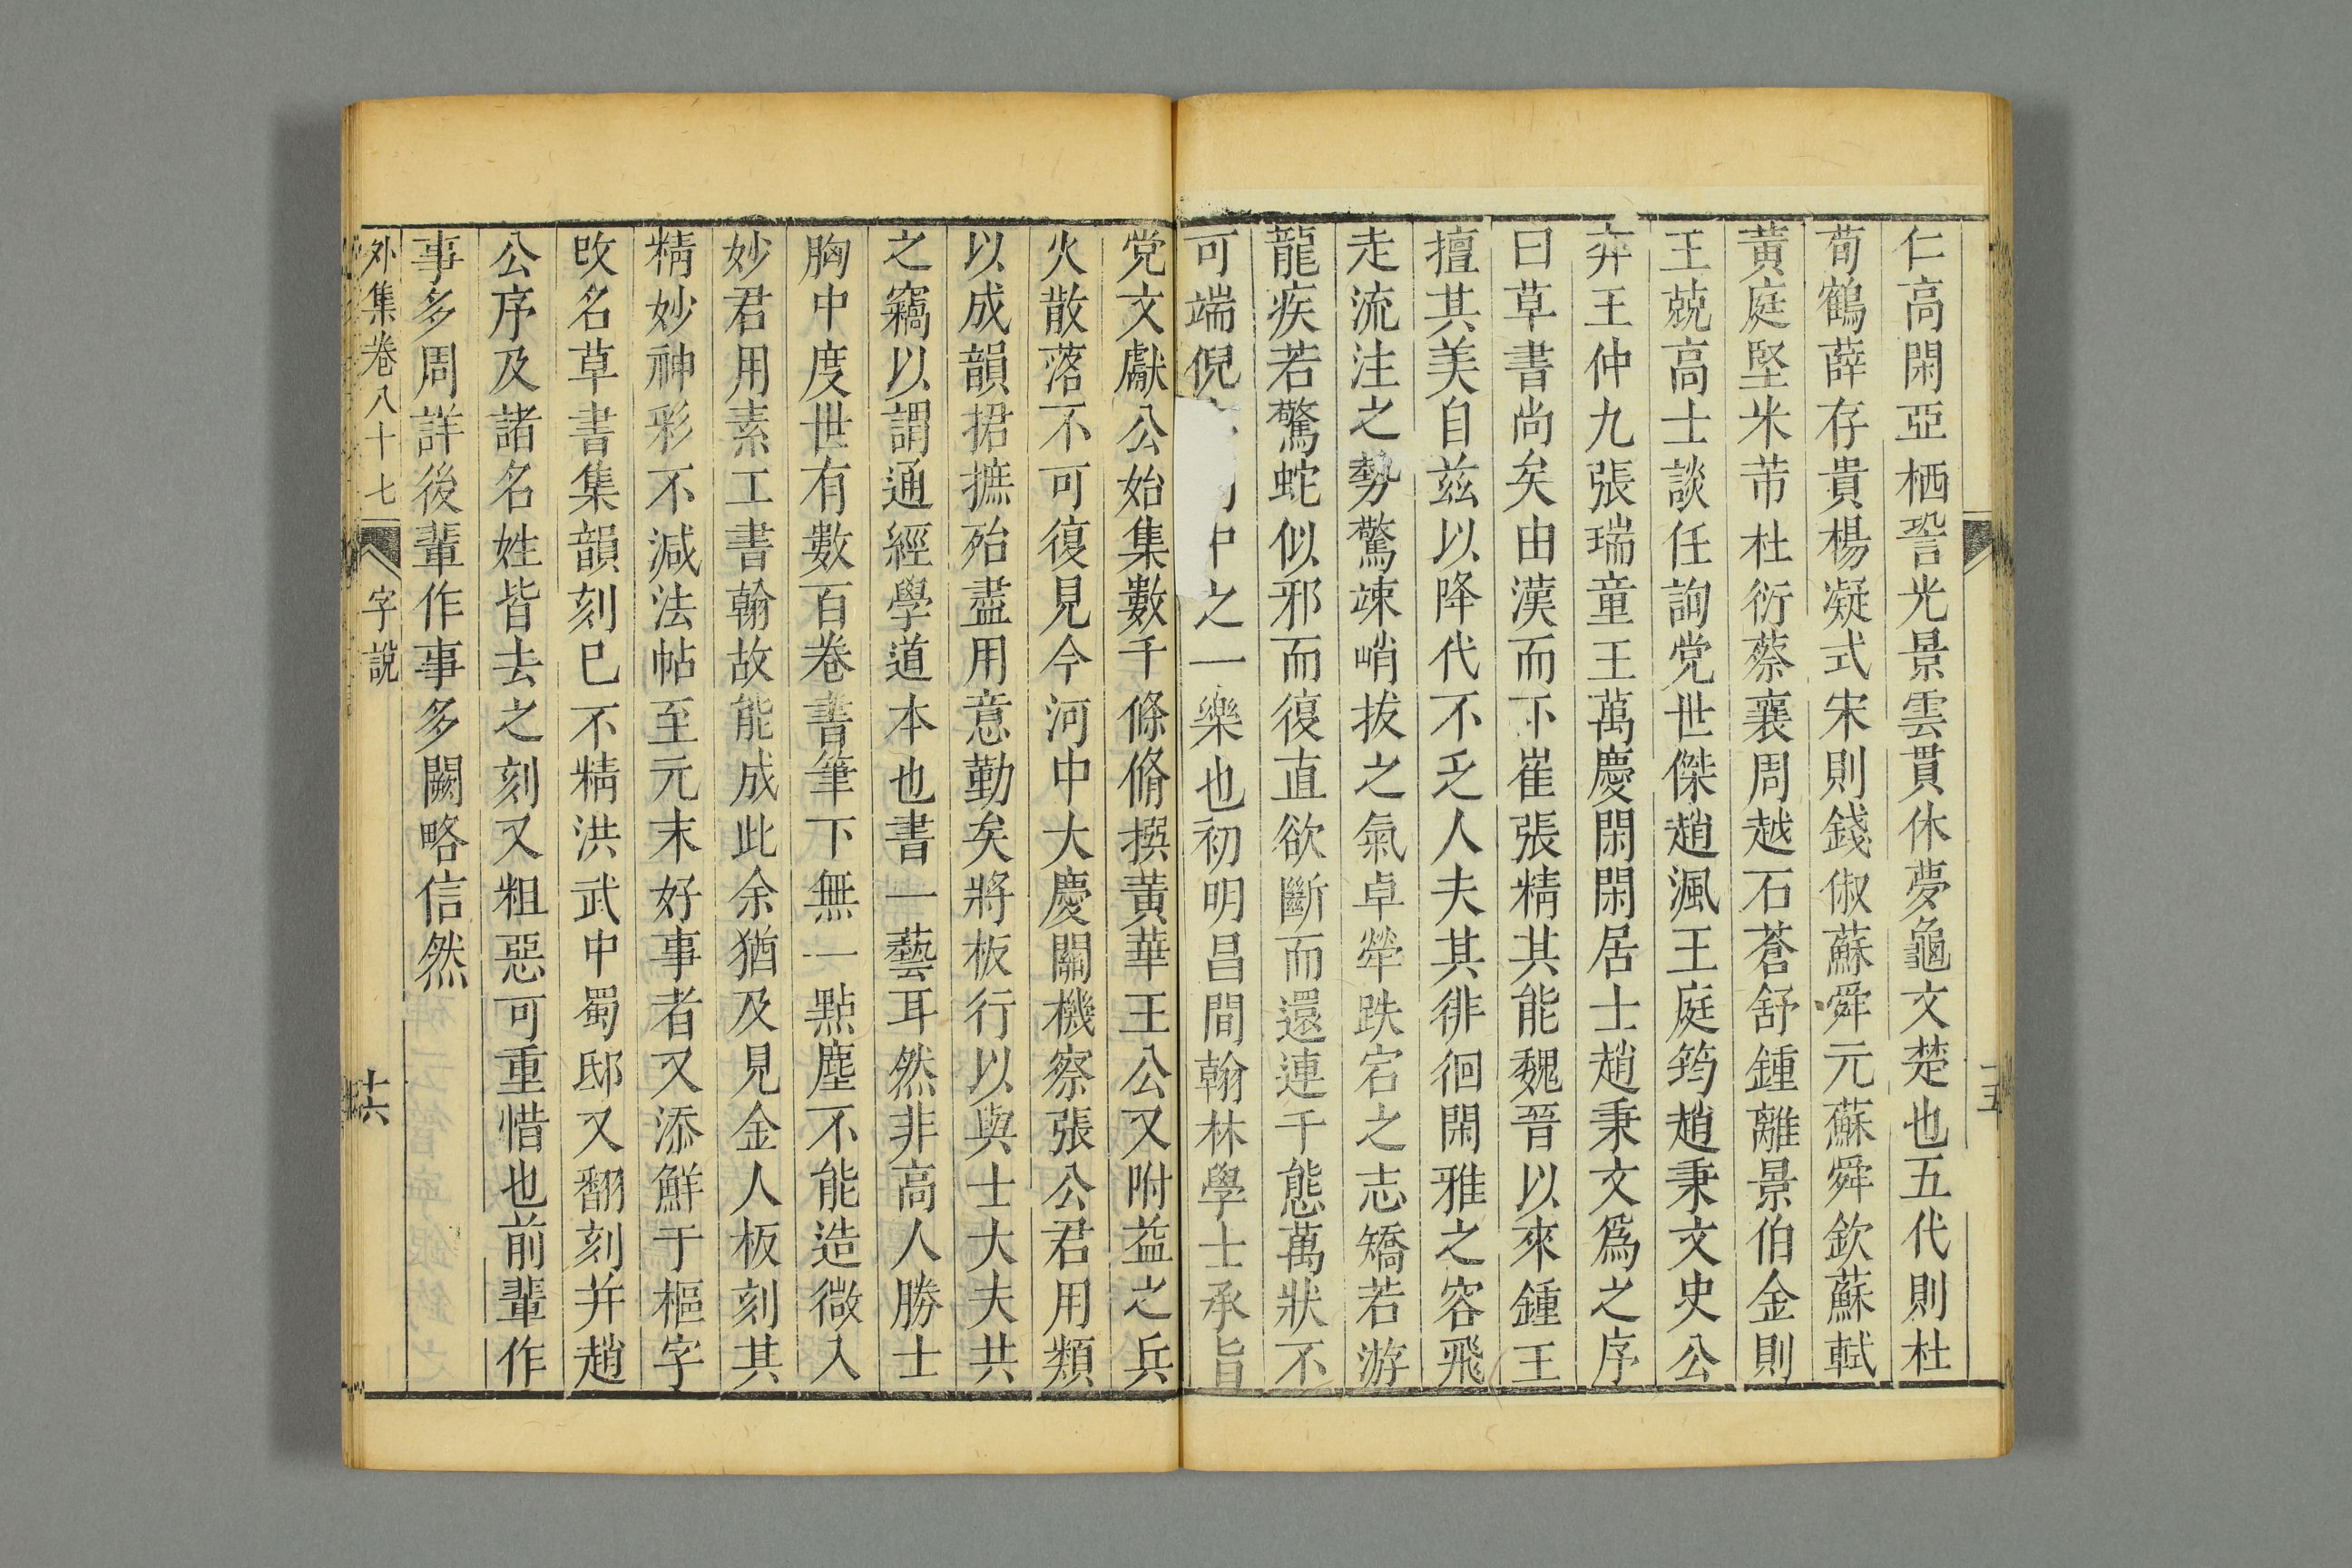 仁高閑亞栖䛒光景雲貫休夢龜文楚也五代則杜
荀鶴薛存貴楊凝式宋則錢俶蘇舜元蘇舜欽蘇軾
黃庭堅米芾杜衍蔡襄周越石蒼舒鍾離景伯金則
王兢高士談任詢党世傑趙渢王庭筠趙秉文史公
弈王仲九張瑞童王萬慶閑閑居士趙秉文爲之序
曰草書尚矣由漢而下崔張精其能魏晉以來鍾王
擅其美自茲以降代不乏人夫其徘徊閑雅之容飛
走流注之勢驚竦峭拔之氣卓犖跌宕之志矯若游
龍疾若驚蛇似邪而復直欲斷而還連千態萬狀不
可端倪中之一樂也初明昌間翰林學士承旨
十五
党文獻公始集數千條脩撰黃華王公又附益之兵
火散落不可復見今河中大慶關機察張公君用類
以成韻捃摭殆盡用意勤矣將板行以與士大夫共
之竊以謂通經學道本也書一藝耳然非高人勝士
胸中度世有數百卷書筆下無一點塵不能造微入
妙君用素工書翰故能成此余猶及見金人板刻其
精妙神彩不減法帖至元末好事者又添鮮于樞字
改名草書集韻刻已不精洪武中蜀邸又翻刻并趙
公序及諸名姓皆去之刻又粗惡可重惜也前輩作
事多周詳後輩作事多闕略信然
外集卷八十七 字說 十六